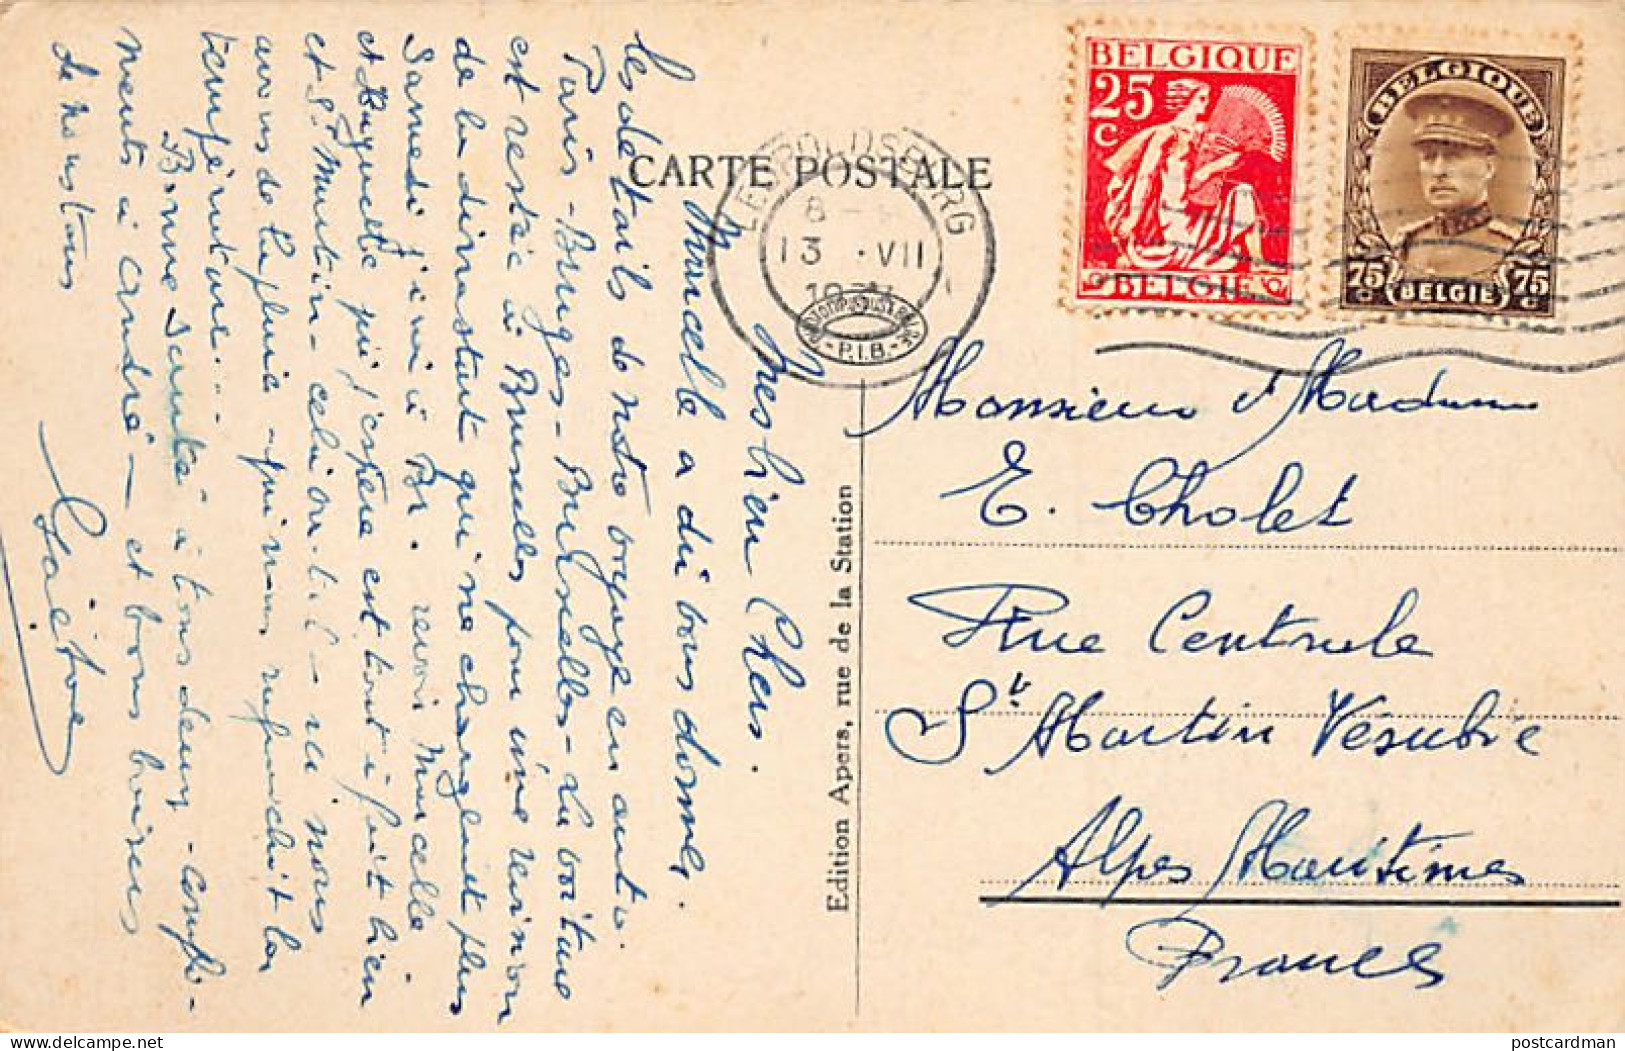 CARTE POSTALE
BELGIQUE
25
C
BELGIE
BELGIQUE
75
C
75
C
BELGIE
LEOPOLDSBURG
8 -
13 . VII
19
- P.I.B. -
Edition Apers, rue de la Station
Mes bien Chers.
Marcelle a dû vous donner
les détails de notre voyage en auto.
Paris - Bruges - Bruxelles - La voiture
est restée à Bruxelles pour une révision
de la dynastart qui ne chargeait plus
Samedi j'irai à Br. revoir Marcelle
et Huguette qui j'espère est tout à fait bien
et St Martin - celui ou-t-il - ici nous
avons de la pluie - qui nous rafraichit la
température...
Bonne Santé à tous deux - compli-
ments à André - et bons baisers
de nous tous
Gaëtone
Monsieur et Madame
E. Cholet
Rue Centrale
St Martin Vésubie
Alpes Maritimes
France
postcardman